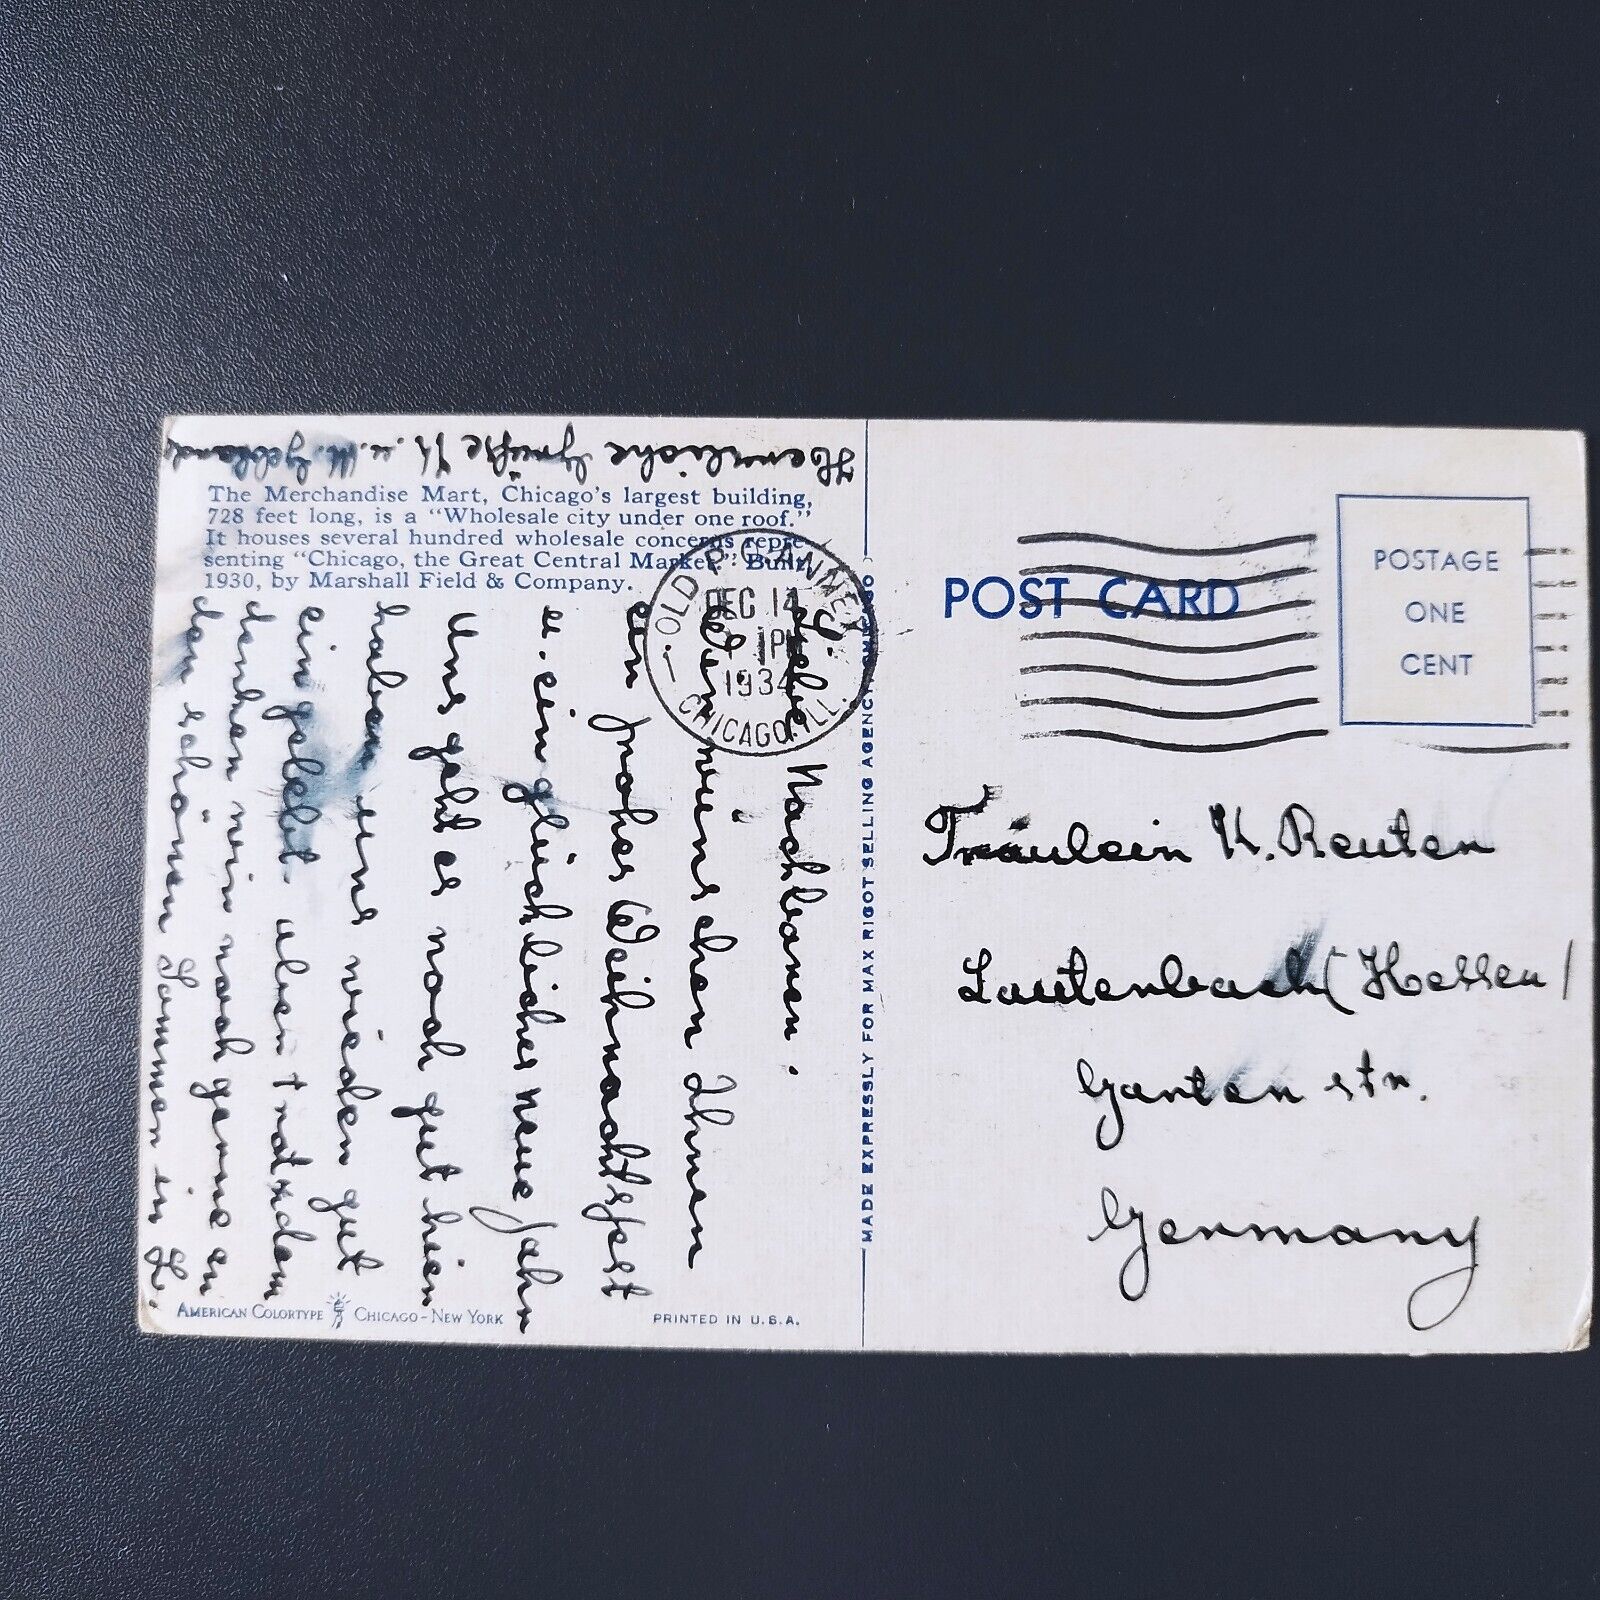 The Merchandise Mart, Chicago's largest building,
728 feet long, is a "Wholesale city under one roof."
It houses several hundred wholesale concerns repre-
senting "Chicago, the Great Central Market." Built
1930, by Marshall Field & Company.
Liebe Nachbaren.
Wir wünschen Ihnen
ein frohes Weihnachtsfest
u. ein glückliches neue Jahr
Uns geht es noch gut hier
haben uns wieder gut
ein gelebt. aber trotzdem
denken wir noch gerne an
den schönen Sommer in L.
Herzliche Grüße K. u. M.
AMERICAN COLORTYPE CHICAGO-NEW YORK
PRINTED IN U.S.A.
MADE EXPRESSLY FOR MAX RIGOT SELLING AGENCY, CHICAGO
DEC 14
1 PM
1934
CHICAGO, ILL.
POST CARD
POSTAGE
ONE
CENT
Fräulein K. Reuter
Lauterbach (Hessen)
Garten str.
Germany